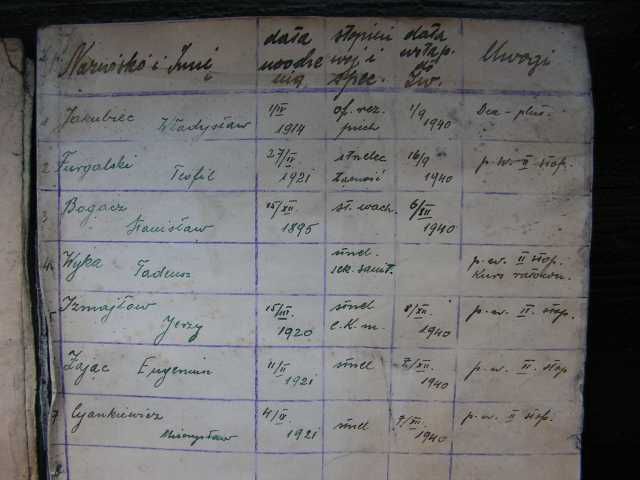 Nazwisko i Imię data urodze nia stopień woj. i spec. data wstąp. do Zw. Uwagi
1 Jakubiec Władysław 1/IV 1914 of. rez. piech 1/9 1940 Dca - plut.
2 Furgalski Teofil 27/II. 1921 strzelec Łączność 16/9 1940 p. w. II stop.
3 Bogacz Stanisław 15/XII. 1895 st. wach. 6/XII 1940
4. Wyka Tadeusz strzel. sek. sanit. p. w. II stop. Kurs ratown.
5 Izmajłow Jerzy 15/III. 1920 strzel C.K.m. 8/XII. 1940 p. w. II. stop.
Zając Eugeniusz 11/II 1921 strzel 2/XII. 1940 p. w. II. stop
7 Cyankiewicz Mieczysław 4/IV. 1921 strzel 7/XII. 1940 p. w. II stop.